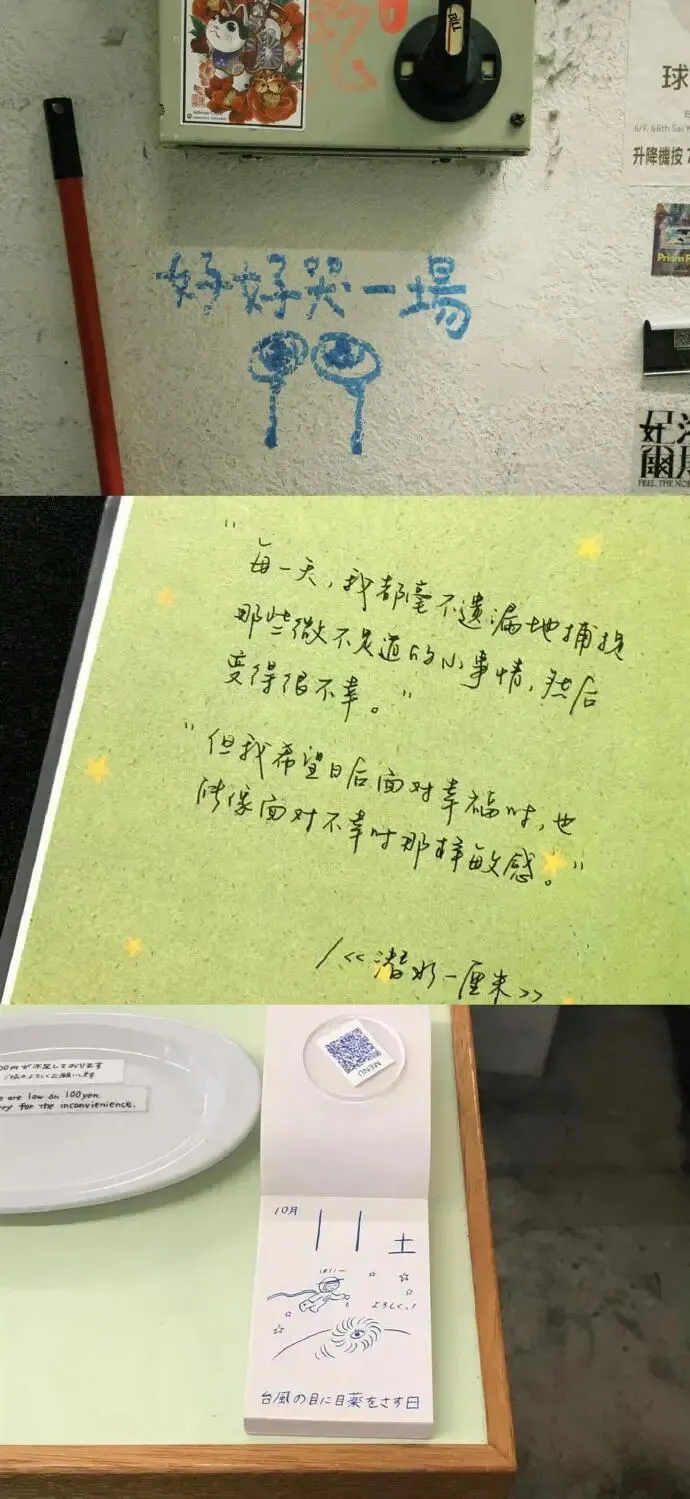 球
6/F, 66th Sai Y
升降機按 7
好好哭一場
FEEL THE NO
"每一天,我都毫不遗漏地捕捉
那些微不足道的小事情,然后
变得很不幸。"
"但我希望日后面对幸福时,也
能像面对不幸时那样敏感。"
/《潜水一厘米》
00円が不足しております
ご協力よろしくお願いします
e are low on 100yen.
rry for the inconvienience.
MENU
10月
11 土
よろしくっ!
台風の目に目薬をさす日